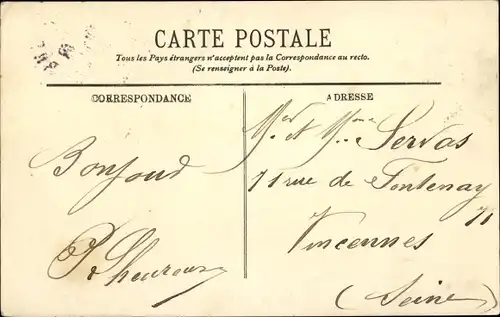 CARTE POSTALE
Tous les Pays étrangers n'acceptent pas la Correspondance au recto.
(Se renseigner à la Poste).
CORRESPONDANCE
ADRESSE
Mr et Mme Servas
71 rue de Fontenay
71
Vincennes
(Seine)
Bonjour
P. Lheureux